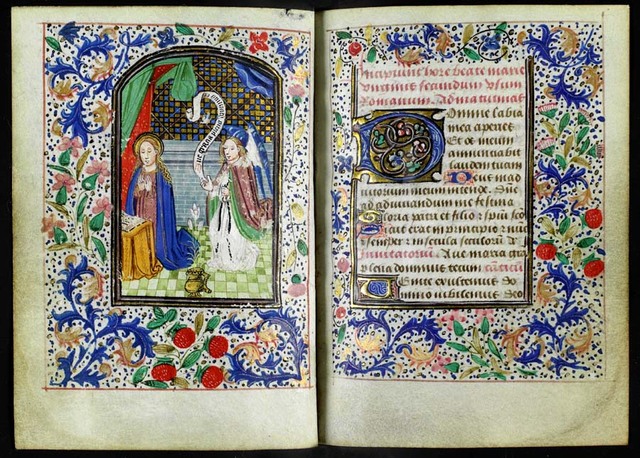 Incipiunt hore beate marie
virginis secundum usum
Romanum. Ad matutinas
Domine labia
mea aperies
Et os meum
annuntiabit
laudem tuam
Deus in ad
iutorium meum intende. Dne
ad adiuvandum me festina
Gloria patri et filio et spui sco
Sicut erat in principio et nunc
et semper et in secula seculorum
Invitatorium. Ave maria gra
plena dominus tecum
Venite exultemus do
mino iubilemus deo